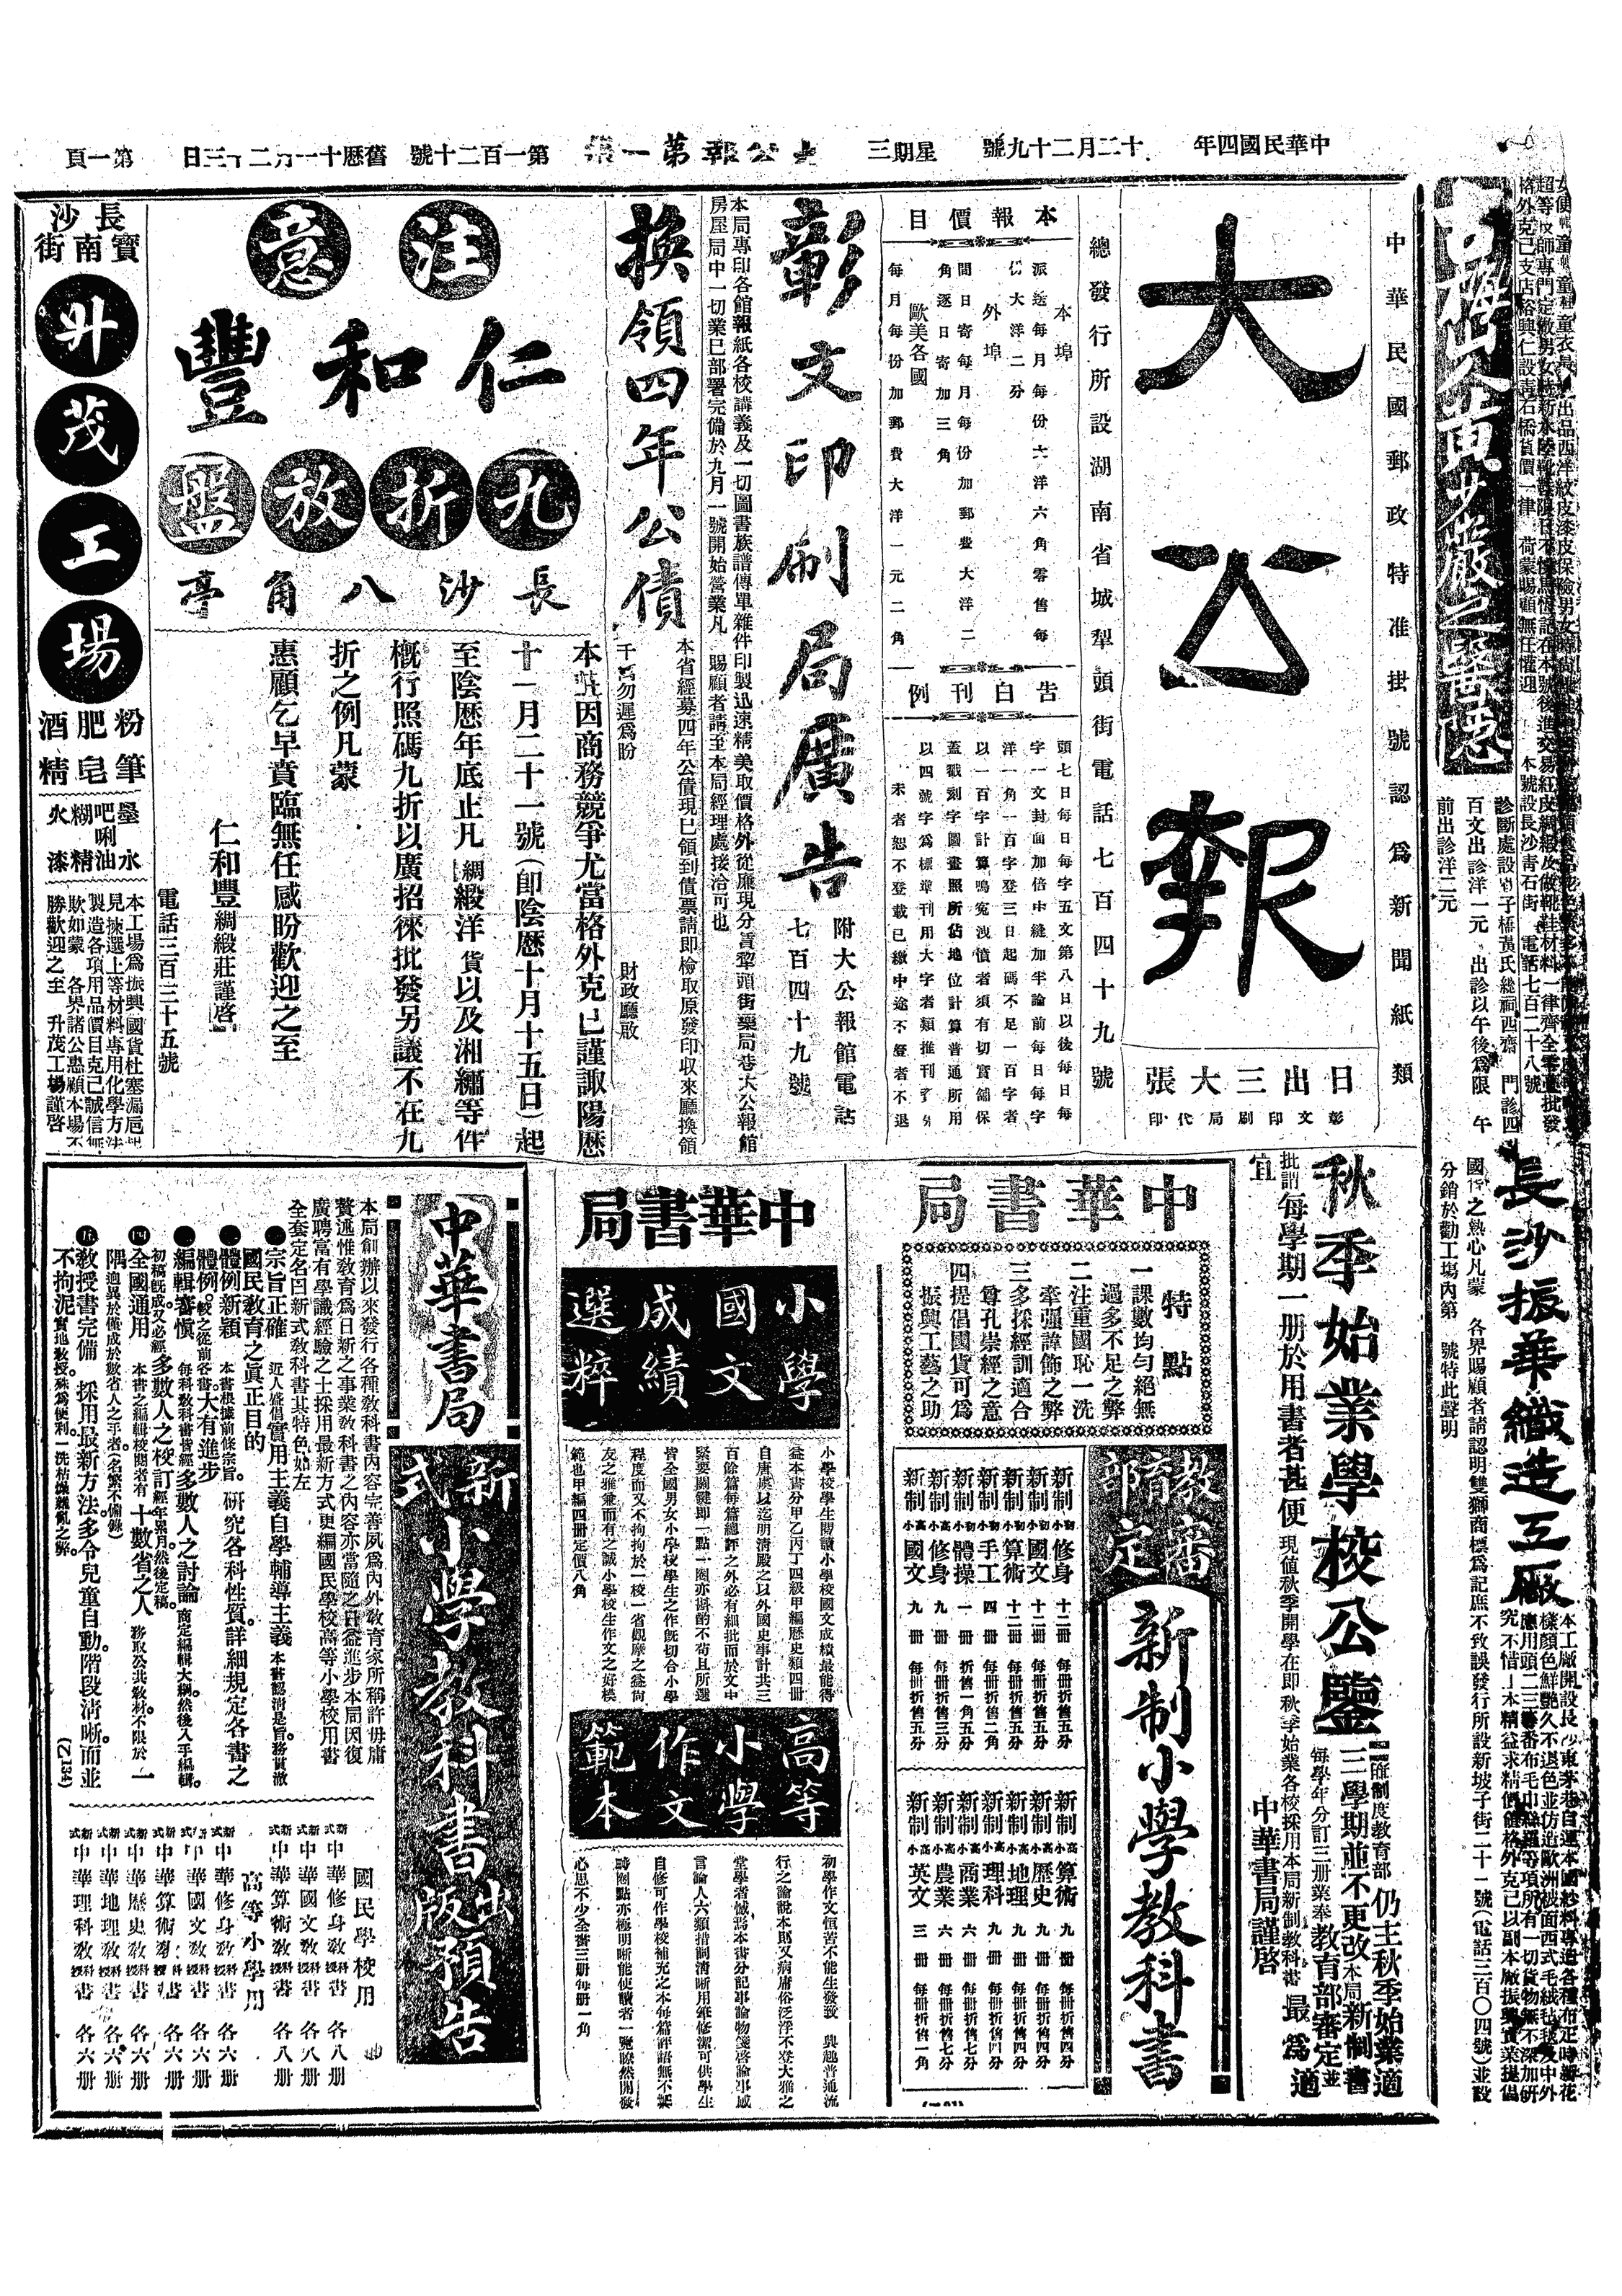 中華民國四年 十二月二十九號 星期三 大公報第一張 第一百二十號 舊歷十一月二十三日 第一頁
中華民國郵政特准掛號認爲新聞紙類
大公報
日出三大張
彰文印刷局代印
總發行所設湖南省城犁頭街電話七百四十九號
本報價目
本埠
派送每月每份大洋六角零售每
份大洋二分
外埠
間日寄每月每份加郵費大洋二
角逐日寄加三角
歐美各國
每月每份加郵費大洋一元二角
告白刊例
頭七日每日每字五文第八日以後每日每
字一文封面加倍中縫加半論前每日每字
洋一角一百字登三日起碼不足一百字者
以一百字計算鳴冤洩憤者須有切實舖保
蓋戳刻字圖畫照所佔地位計算普通所用
以四號字爲標準刊用大字者類推刊費
未者恕不登載已繳中途不登者不退
彰文印刷局廣告
附大公報館電話
七百四十九號
本局專印各館報紙各校講義及一切圖書族譜傳單雜件印製迅速精美取價格外從廉現分賃犂頭街藥局巷大公報館
房屋局中一切業已部署完備於九月一號開始營業凡 賜顧者請至本局經理處接洽可也
換領四年公債
本省經募四年公債現已領到債票請即檢取原發印收來廳換領
千萬勿遲爲盼
財政廳啟
注意
仁和豐
九折放盤
長沙八角亭
本莊因商務競爭尤當格外克己謹諏陽歷
十一月二十一號(即陰歷十月十五日)起
至陰歷年底止凡綢緞洋貨以及湘繡等件
概行照碼九折以廣招徠批發另議不在九
折之例凡蒙
惠顧乞早賁臨無任感盼歡迎之至
仁和豐綢緞莊謹啓
電話三百三十五號
長沙
寶南街
升茂工場
粉筆
肥皂
酒精
墨水
吧唎油
糊精
火漆
本工場爲振興國貨杜塞漏巵起
見揀選上等材料專用化學方法
製造各項用品價目克己誠信無
欺如蒙 各界諸公惠顧本場不
勝歡迎之至 升茂工場謹啓
診斷處設 子橋黃氏總祠西齋 門診四
百文出診洋一元 出診以午後爲限 午
前出診洋二元
長沙振華織造工廠
國貨之熱心凡蒙 各界賜顧者請認明雙獅商標爲記庶不致誤發行所設新坡子街二十一號(電話三百〇四號)並設
分銷於勸工塲內第 號特此聲明
秋季始業學校公鑒
三學期並不更改
仍主秋季始業適
每學年分訂三册業奉教育部審定並
批謂每學期一册於用書者甚便 現值秋季開學在即 秋季始業各校採用本局新制教科書 最爲適
宜
中華書局謹啓
中華書局
特點
一 課數均勻絕無
過多不足之弊
二 注重國恥一洗
牽强諱飾之弊
三 多採經訓適合
尊孔崇經之意
四 提倡國貨可爲
振興工藝之助
教育部審定
新制小學教科書
新制初小修身 十二册 每册折售五分
新制初小國文 十二册 每册折售五分
新制初小算術 十二册 每册折售五分
新制初小手工 四册 每册折售二角
新制初小體操 一册 折售一角五分
新制高小修身 九册 每册折售三分
新制高小國文 九册 每册折售五分
新制高小算術 九册 每册折售四分
新制高小歷史 九册 每册折售四分
新制高小地理 九册 每册折售四分
新制高小理科 九册 每册折售四分
新制高小商業 六册 每册折售七分
新制高小農業 六册 每册折售七分
新制高小英文 三册 每册折售一角
中華書局
小學國文成績選粹
小學校學生閱讀小學校國文成績最能得
益本書分甲乙丙丁四級甲編歷史類四册
自唐虞以迄明清殿之以外國史事計共三
百餘篇每篇總評之外必有細批而於文中
緊要關鍵即一點一圈亦斟酌不苟且所選
皆全國男女小學校學生之作既切合小學
程度而又不拘拘於一校一省觀摩之益尚
友之雅兼而有之誠小學校生作文之好模
範也甲編四册定價八角
高等小學作文範本
初學作文恒苦不能生發致 興趣普通流
行之論說本則又病庸俗泛浮不登大雅之
堂學者憾焉本書分記事論物箋啓論事感
言論人六類措制清晰用筆修潔可供學生
自修可作學校補充之本每篇評語無不詳
時圈點亦極明晰能使讀者一覽瞭然開發
心思不少全書三册每册一角
中華書局
新式小學教科書出版預告
本局創辦以來發行各種教科書內容完善夙爲內外教育家所稱許毋庸
贅述惟教育爲日新之事業教科書之內容亦當隨之日益進步本局因復
廣聘富有學識經驗之士採用最新方式更編國民學校高等小學校用書
全套定名曰新式教科書其特色如左
一宗旨正確 近人盛倡實用主義自學輔導主義本書認清是旨務貫澈
國民教育之真正目的
二體例新穎 本書根據前條宗旨研究各科性質詳細規定各書之
體例較之從前各書大有進步
三編輯審愼 每科教科書皆經多數人之討論商定編輯大綱然後入手編輯
初稿旣成又必經多數人之校訂經年累月然後定稿
四全國通用 本書之編輯校閱者有十數省之人 務取公共教材不限於一
隅迥異於僅成於數省人之手者(名繁不備錄)
五教授書完備 採用最新方法多令兒童自動階段清晰而並
不拘泥實地教授殊爲便利一洗枯燥雜亂之弊
(乙134)
國民學校用
新式中華修身教科教授書 各八册
新式中華國文教科教授書 各八册
新式中華算術教科教授書 各八册
高等小學用
新式中華修身教科教授書 各六册
新式中華國文教科教授書 各六册
新式中華算術教科教授書 各六册
新式中華歷史教科教授書 各六册
新式中華地理教科教授書 各六册
新式中華理科教科教授書 各六册